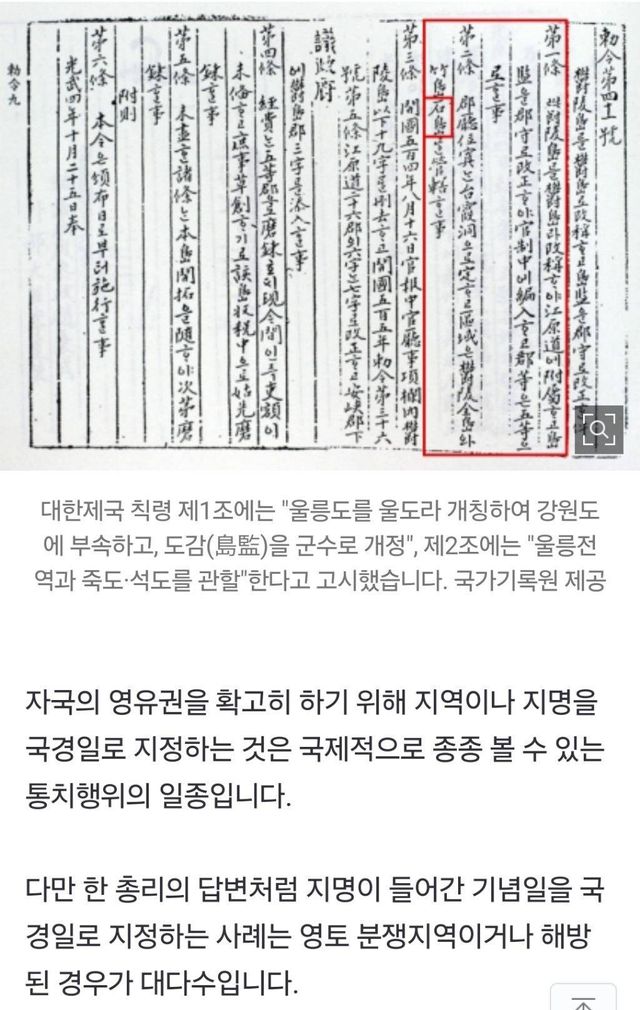 勅令第四十一號
鬱陵島를鬱島로改稱하고島監을郡守로改正한件
第一條 鬱陵島를鬱島라改稱하야江原道에附屬하고島
監을郡守로改正하야官制中에編入하고郡等은五等으
로할事
第二條 郡廳位寘는台霞洞으로定하고區域은鬱陵全島와
竹島石島를管轄할事
第三條 開國五百四年八月十六日官報中官廳事項欄內鬱
陵島以下十九字를刪去하고開國五百五年勅令第三十六
號第五條江原道二十六郡의六字는七字로改正하고安峽郡下
議政府
에鬱島郡三字를添入할事
第四條 經費는五等郡으로磨鍊호되現今間인즉吏額이
未備하고庶事草創하기로該島收稅中으로姑先磨
鍊할事
第五條 未盡한諸條는本島開拓을隨하야次第磨
鍊할事
附則
第六條 本令은頒布日로부터施行할事
光武四年十月二十五日奉
勅令九
대한제국 칙령 제1조에는 "울릉도를 울도라 개칭하여 강원도
에 부속하고, 도감(島監)을 군수로 개정", 제2조에는 "울릉전
역과 죽도·석도를 관할"한다고 고시했습니다. 국가기록원 제공
자국의 영유권을 확고히 하기 위해 지역이나 지명을
국경일로 지정하는 것은 국제적으로 종종 볼 수 있는
통치행위의 일종입니다.
다만 한 총리의 답변처럼 지명이 들어간 기념일을 국
경일로 지정하는 사례는 영토 분쟁지역이거나 해방
된 경우가 대다수입니다.